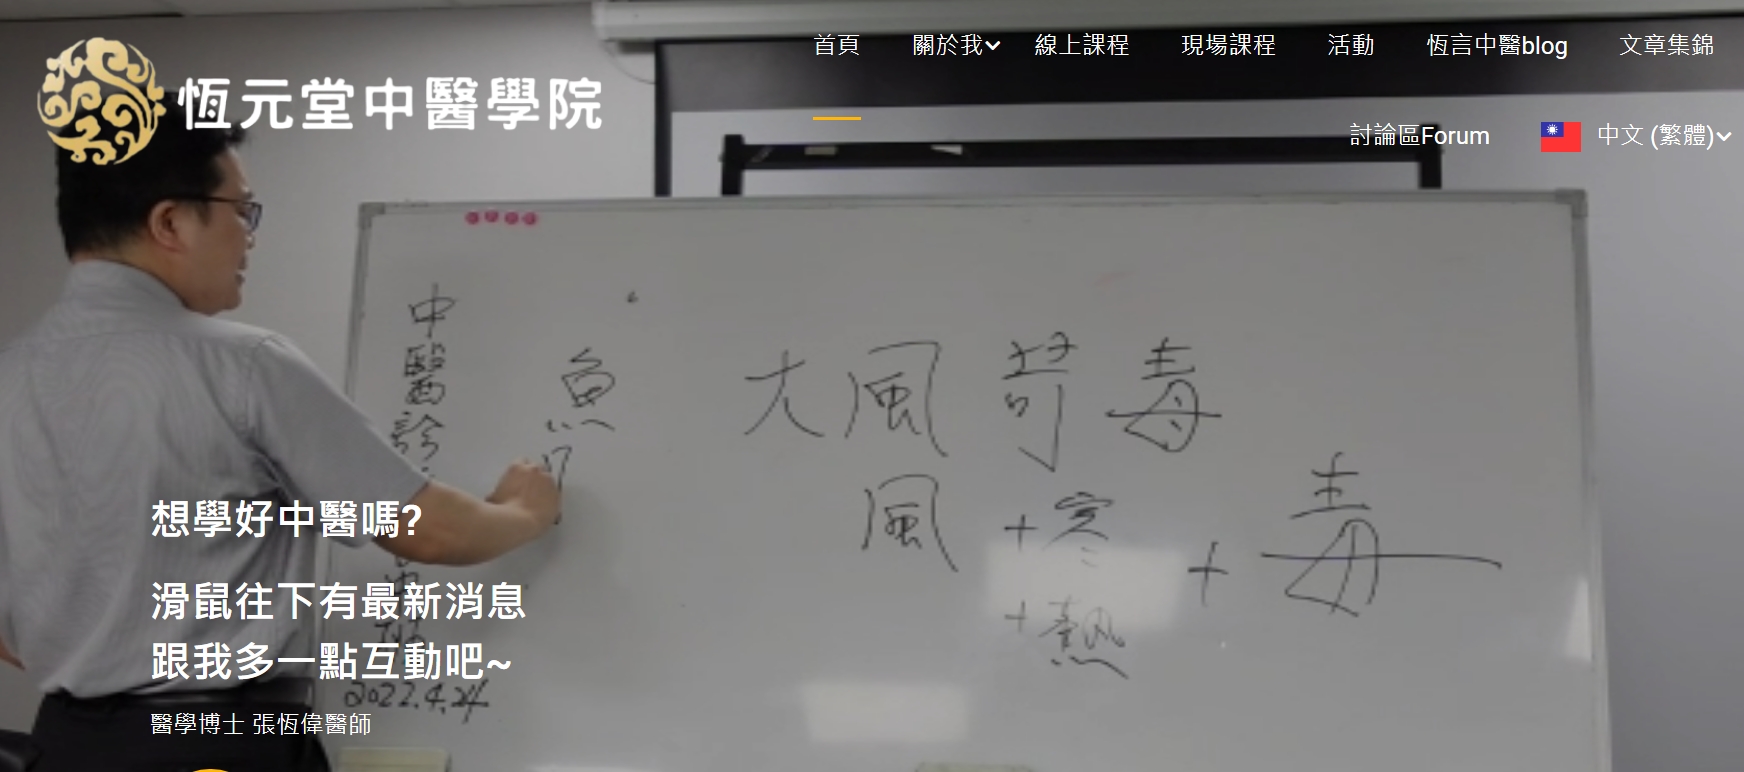 恆元堂中醫學院
首頁
關於我
線上課程
現場課程
活動
恆言中醫blog
文章集錦
討論區Forum
中文 (繁體)
中醫診
魚
大風苛毒
風 + 寒 + 毒
+ 熱
想學好中醫嗎?
滑鼠往下有最新消息
跟我多一點互動吧~
2022.4.24
醫學博士 張恆偉醫師